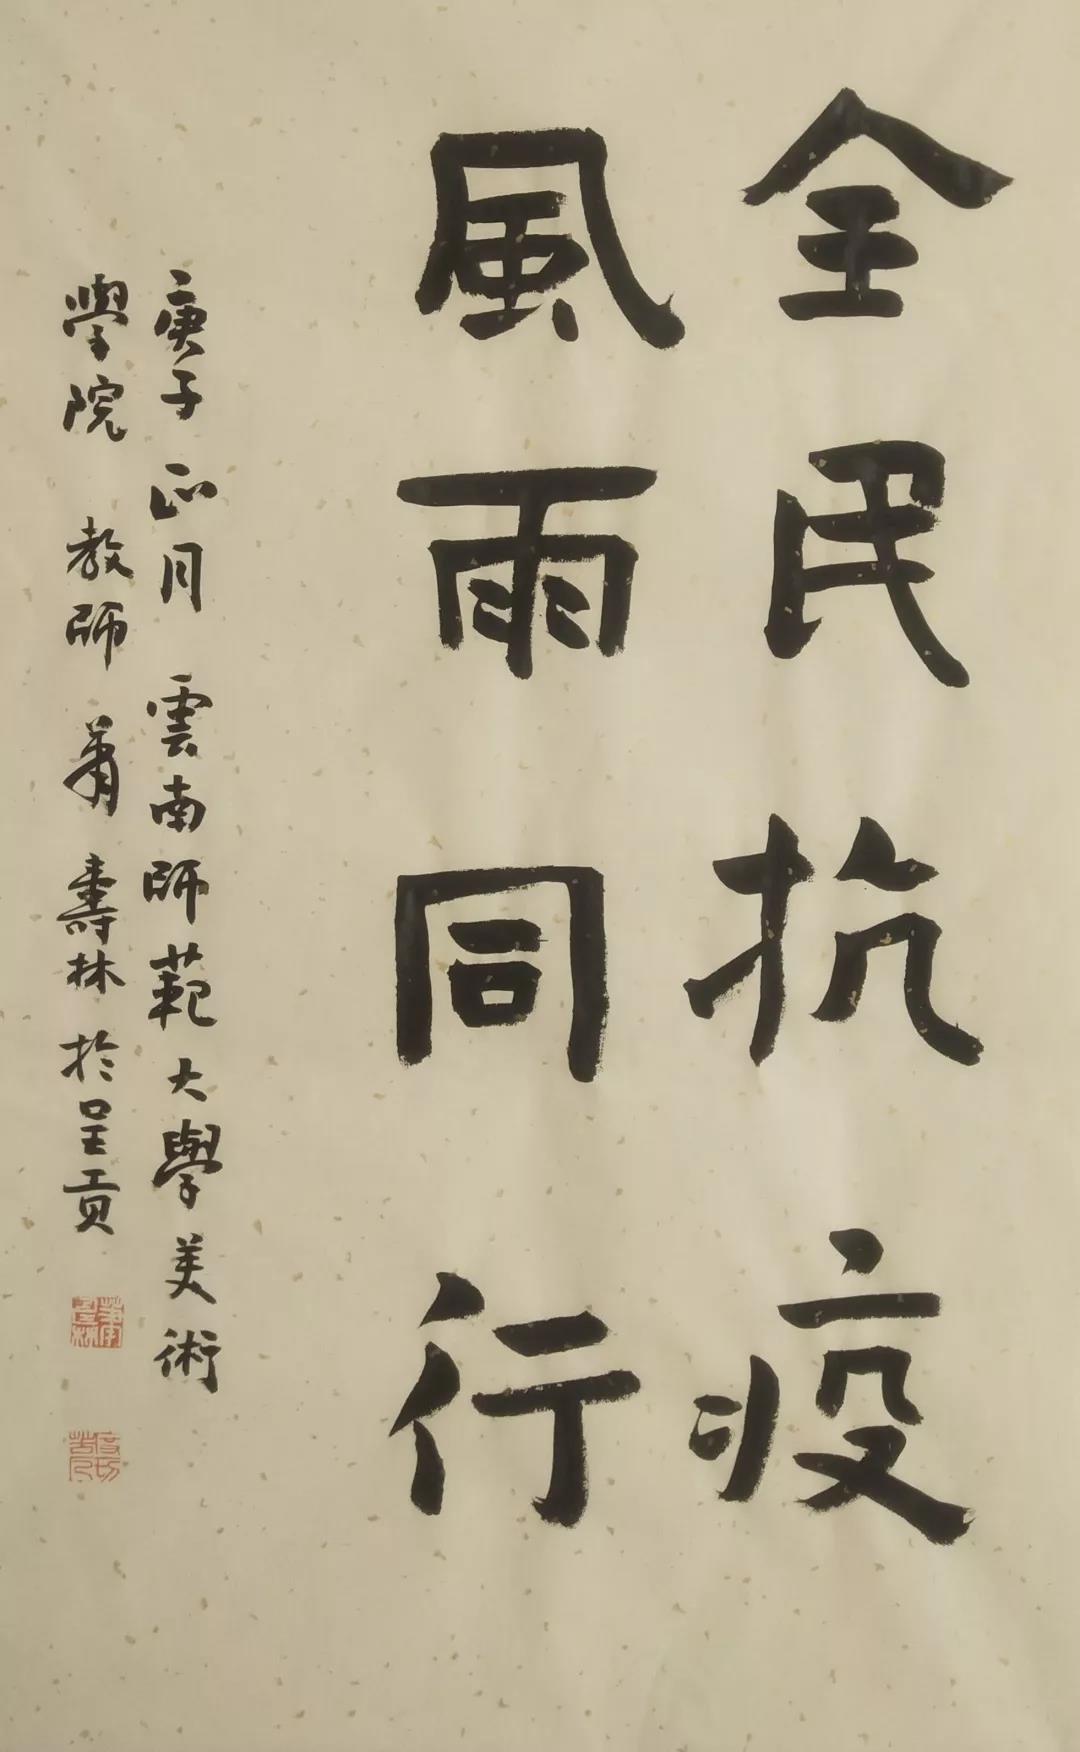 全民抗疫
風雨同行
庚子正月雲南師範大學美術
學院教師蕭壽林於呈貢